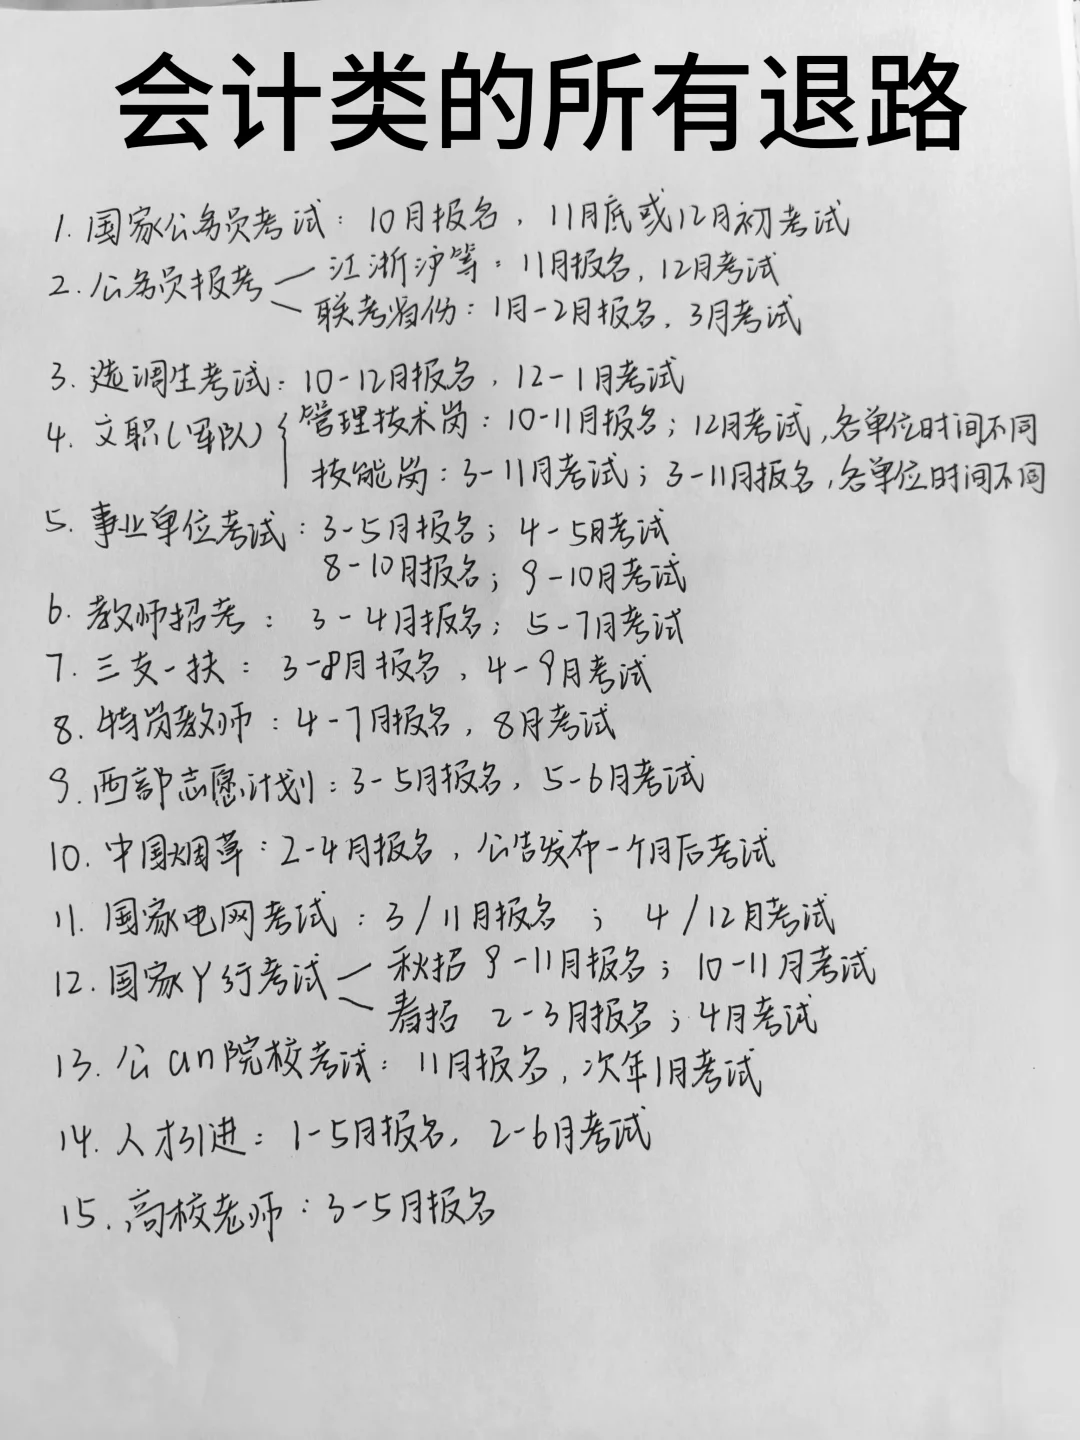 会计类的所有退路
1. 国家公务员考试：10月报名，11月底或12月初考试
2. 公务员报考 江浙沪等：11月报名，12月考试
联考省份：1月-2月报名，3月考试
3. 选调生考试：10-12月报名，12-1月考试
4. 文职(军队) 管理技术岗：10-11月报名；12月考试，各单位时间不同
技能岗：3-11月考试；3-11月报名，各单位时间不同
5. 事业单位考试：3-5月报名；4-5月考试
8-10月报名；9-10月考试
6. 教师招考：3-4月报名；5-7月考试
7. 三支一扶：3-8月报名，4-9月考试
8. 特岗教师：4-7月报名，8月考试
9. 西部志愿计划：3-5月报名，5-6月考试
10. 中国烟草：2-4月报名，公告发布一个月后考试
11. 国家电网考试：3/11月报名；4/12月考试
12. 国家丫行考试 秋招 9-11月报名；10-11月考试
春招 2-3月报名；4月考试
13. 公an院校考试：11月报名，次年1月考试
14. 人才引进：1-5月报名，2-6月考试
15. 高校老师：3-5月报名